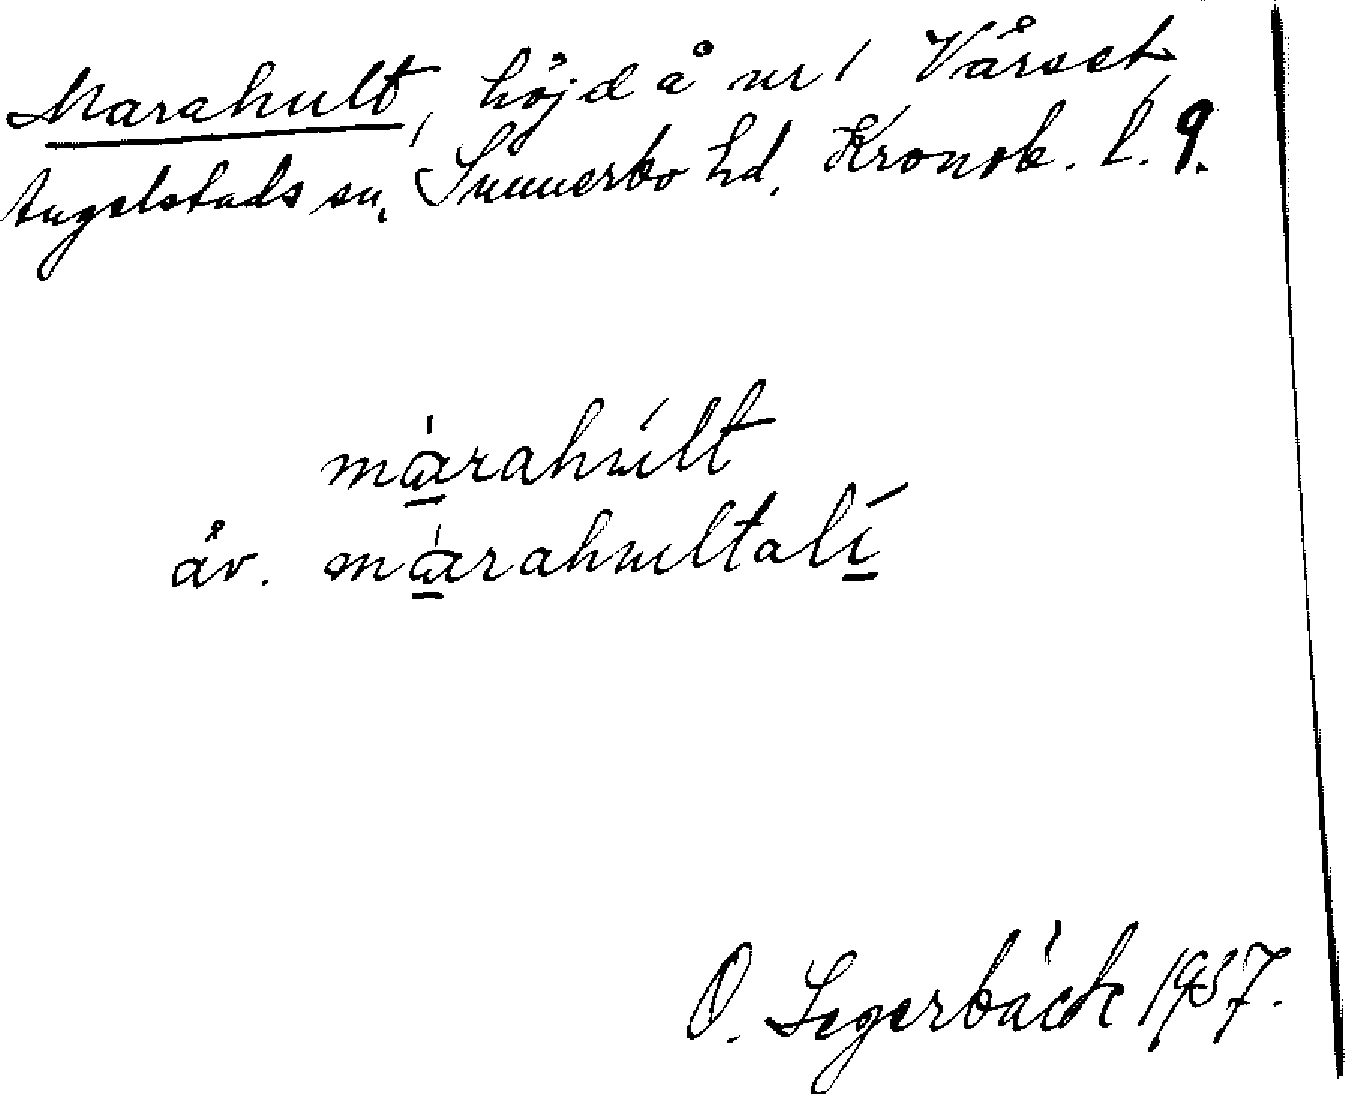 Marahult, höjd å nr 1 Vårset,
Angelstads sn, Sunnerbo hd, Kronob. l. 9.
ma̱rahult
äv. ma̱rahultali̱
O. Segerbäck 1937.